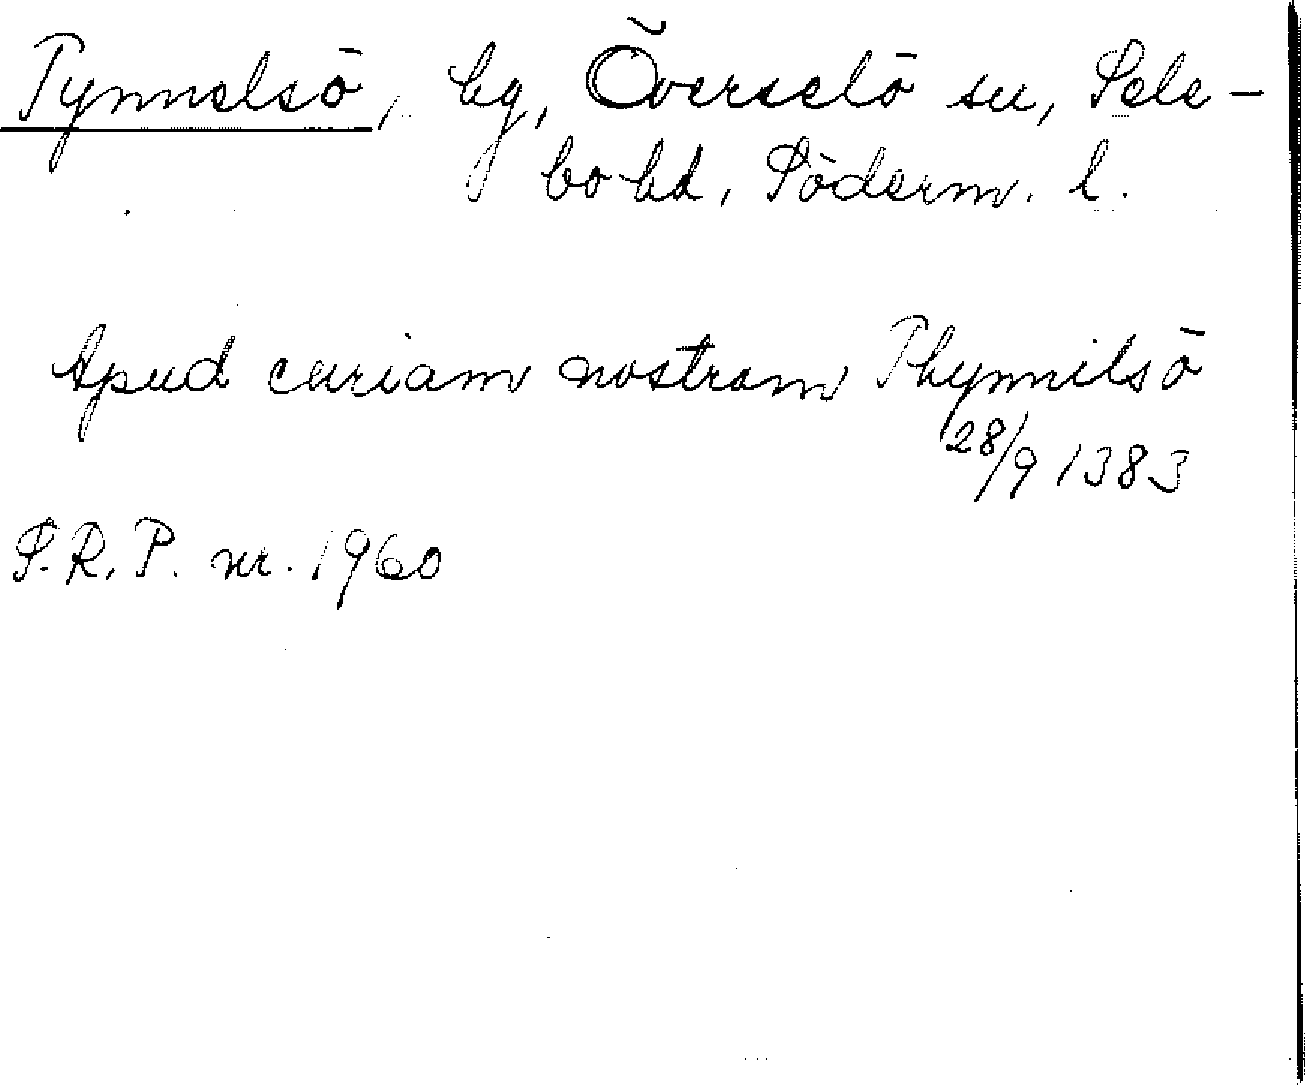 Tynnelsö, bg, Överselö sn, Sele-
bo hd, Söderm. l.
Apud curiam nostram Thynnilsö
28/9 1383
S.R.P. nr. 1960